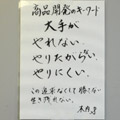 商品開発のキーワード
大手が
やれない
やりたがらない
やりにくい
この温まなくして勝てない
生き残れない